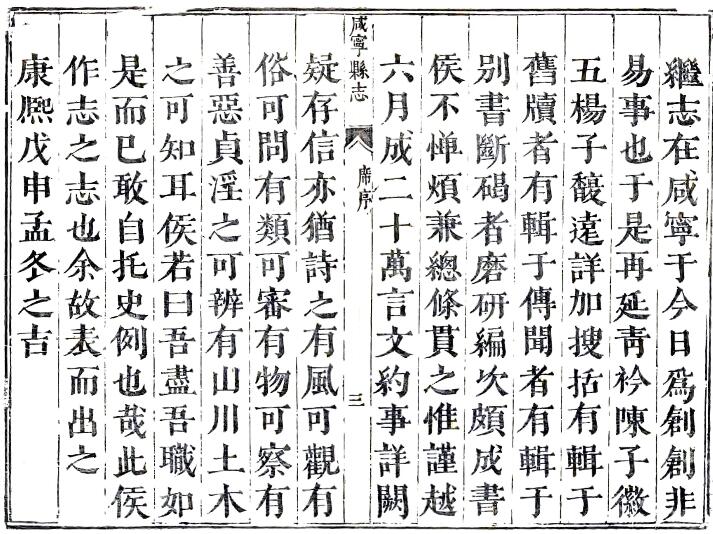 繼志在咸寧于今日為創創非
易事也于是再延靑衿陳子徽
五楊子馥遠詳加搜括有輯于
舊牘者有輯于傳聞者有輯于
別書斷碣者磨研編次頗成書
侯不憚煩兼總條貫之惟謹越
六月成二十萬言文約事詳闕
咸寧縣志
席序
三
疑存信亦猶詩之有風可觀有
俗可問有類可審有物可察有
善惡貞淫之可辨有山川土木
之可知耳侯若曰吾盡吾職如
是而已敢自托史例也哉此侯
作志之志也余故表而出之
康熙戊申孟冬之吉